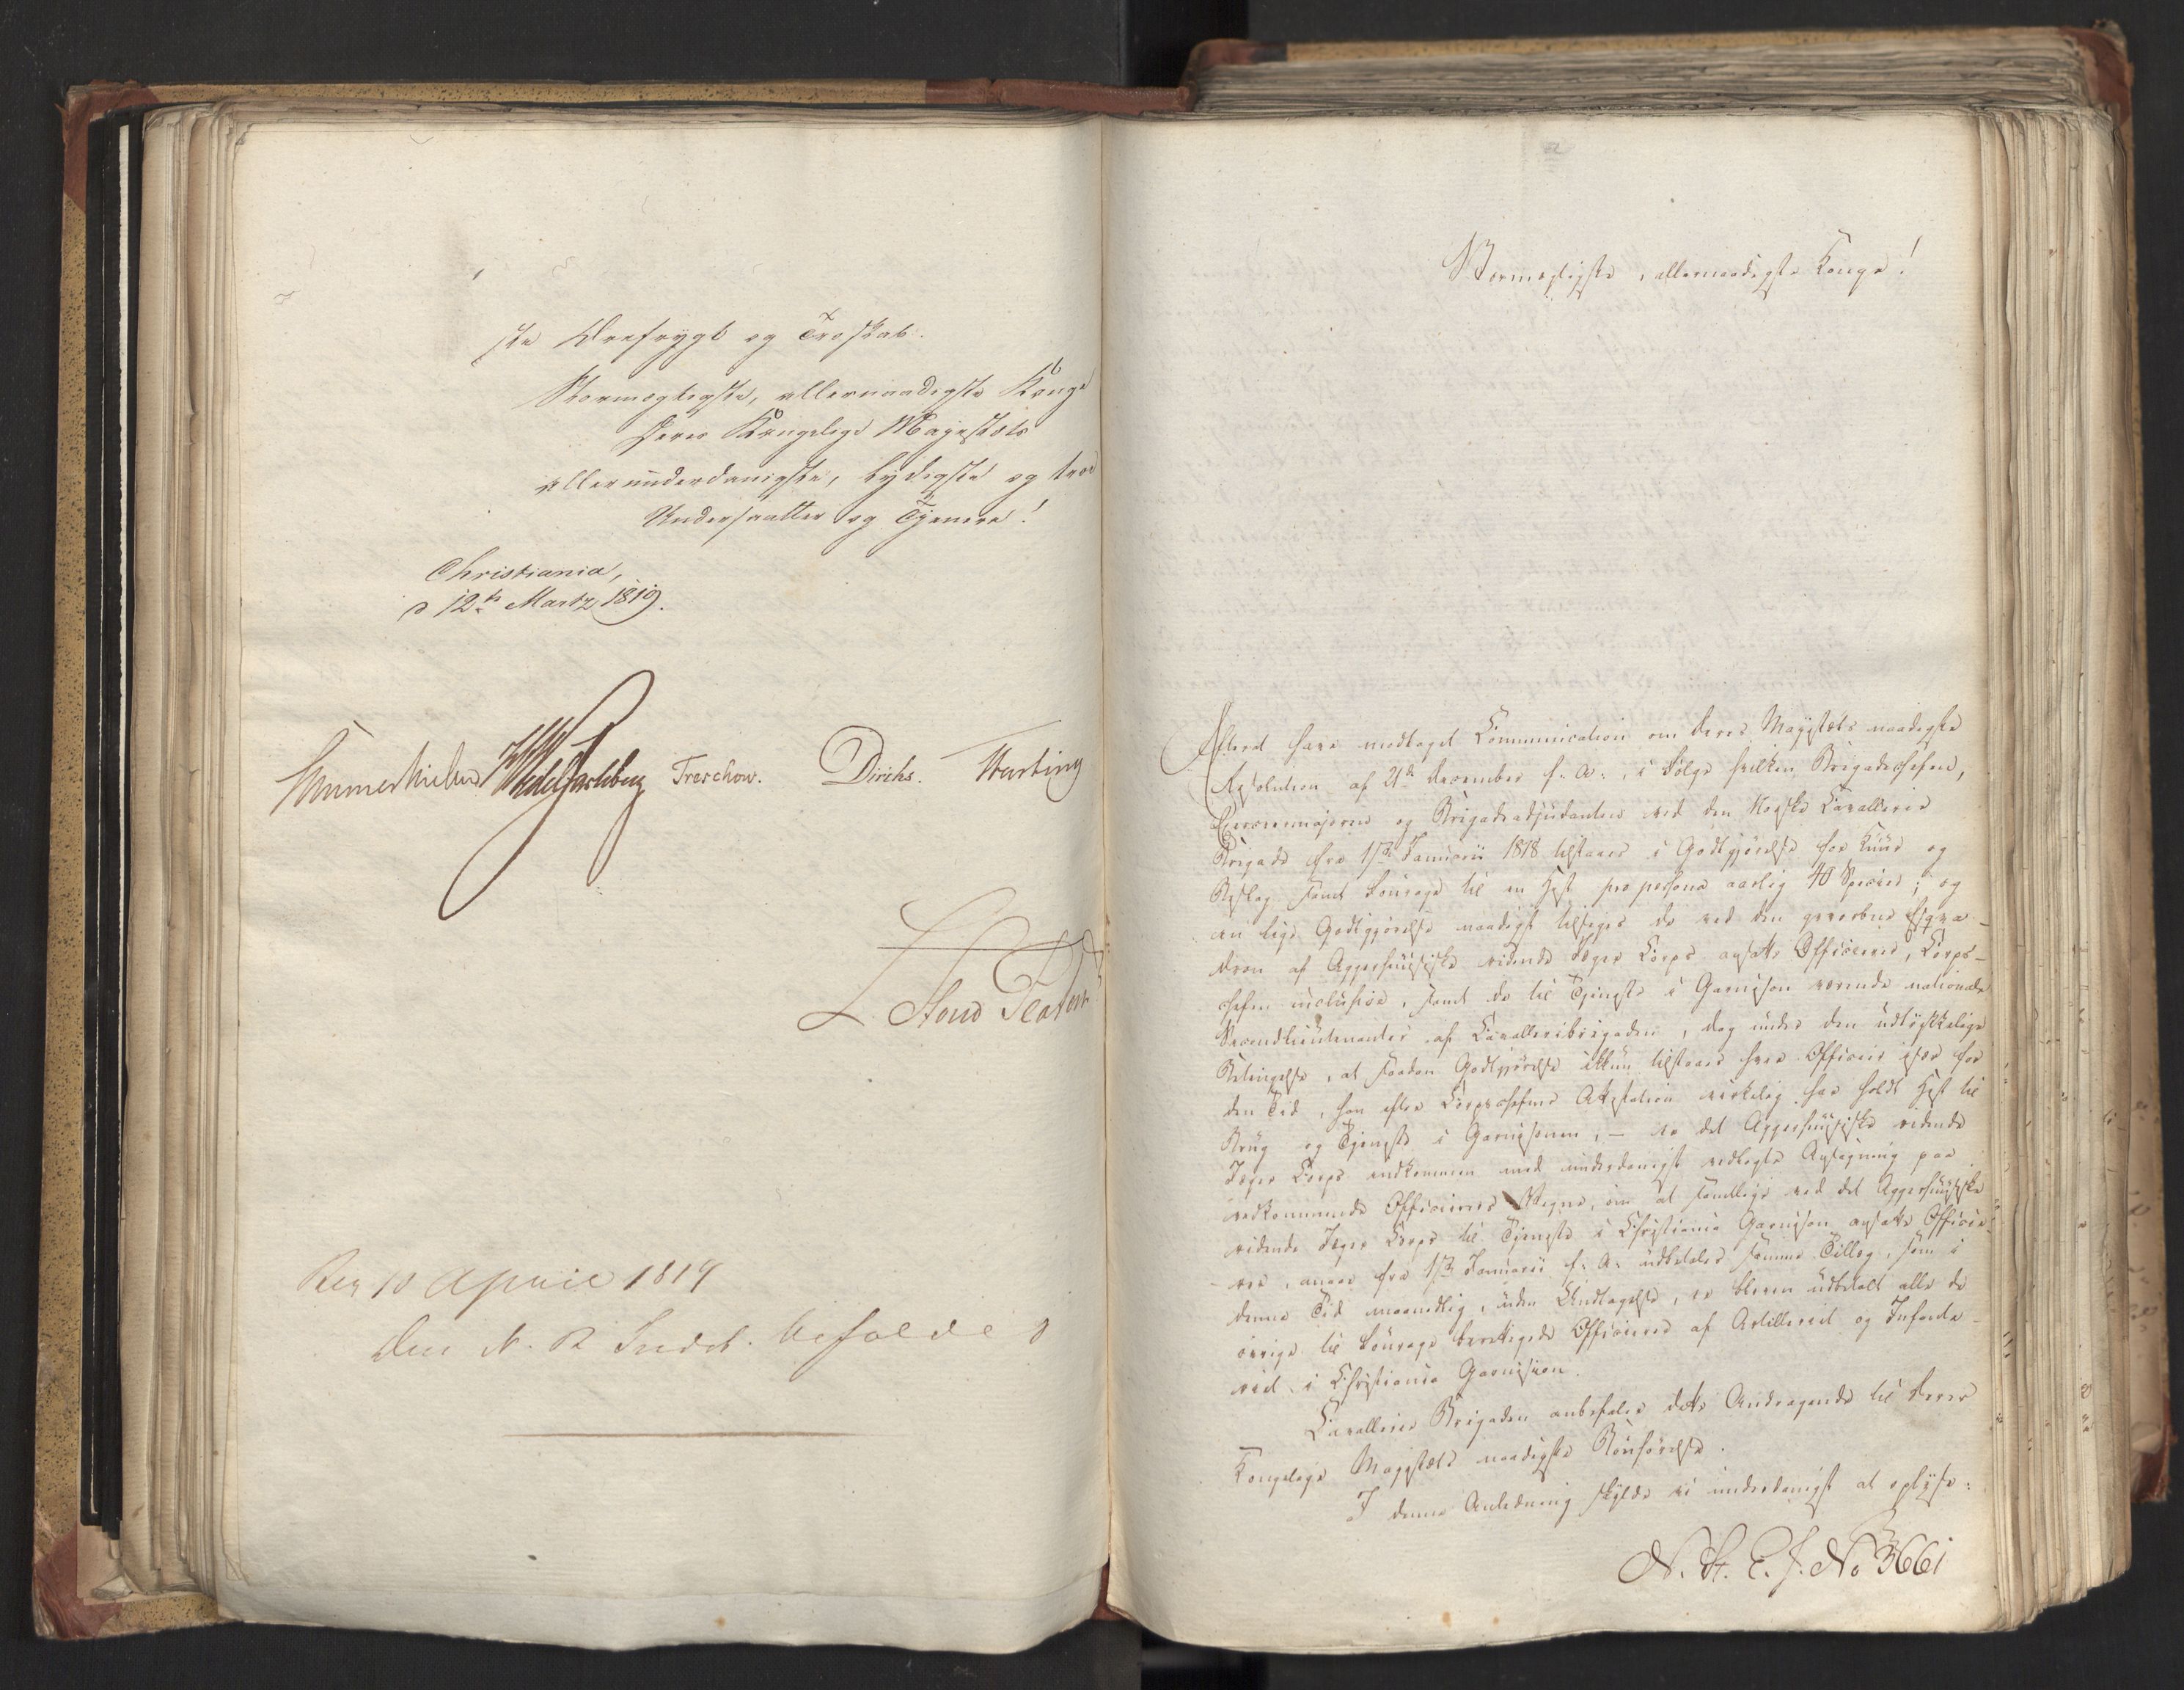 ste Ærefrygt og Troskab.
Stormægtigste, allernaadigste Konge
Deres Kongelige Majestæts
allerunderdanigste, lydigste og troe
Undersaatter og Tjenere!
Christiania,
d 12te Martz 1819.
Sommerhielm WedelJarlsberg Treschow. Diriks. Hurting
L. Stoud Platou
Res 10 April 1819
den N. R Indst. bifaldes
Stormægtigste, allernaadigste Konge!
Efterat have modtaget Communication om Deres Majestæts naadigste
Resolution af 21de December f: A:, i Følge hvilken Brigadechefen,
Exercermajoren og Brigadeadjudanten ved den Norske Cavallerie
Brigade fra 1ste Januarii 1818 tilstaaes i Godtgjørelse for Kuur og
Beslag samt Fourage til en Hest pro persona aarlig 40 Specier; og
en lige Godtgjørelse naadigst tillægges de ved den hvervede Esqva-
dron af Aggershuusiske ridende Jæger Corps ansatte Officierer, Corps-
chefen inclusive, samt de til Tjeneste i Garnison værende nationale
Secondlieutenanter af Cavalleribrigaden, dog under den udtrykkelige
Betingelse, at saadan Godtgjørelse ikkun tilstaaes hver Officier især for
den Tid, han efter Corpschefens Attestation virkelig har holdt Hest til
Brug og Tjeneste i Garnisonen, – er det Aggershuusiske ridende
Jæger Corps indkommen med underdanigst vedlagte Ansøgning paa
vedkommende Officierers Vegne, om at samtlige ved det Aggershuusiske
ridende Jæger Corps til Tjeneste i Christiania Garnison ansatte Officie-
rer, maae fra 1ste Januarii f: A: udbetales samme Tillæg, som i
denne Tid maanedlig, uden Undtagelse, er bleven udbetalt alle de
øvrige til Fourage berettigede Officierer af Artilleriet og Infante-
riet i Christiania Garnison.
Cavallerie Brigaden anbefaler dette Andragende til Deres
Kongelige Majestæts naadigste Bønhørelse.
I denne Anledning skylde vi underdanigst at oplyse:
N. St. E. J. No 3661